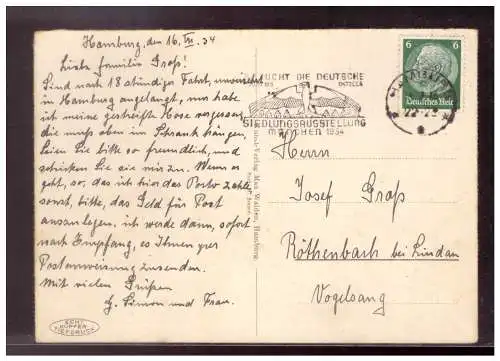 Hamburg, den 16. VII. 34
Liebe Familie Groß!
Sind nach 18 stündiger Fahrt, unversehrt
in Hamburg angelangt, nun habe
ich meine gestreifte Hose vergessen,
die muß oben im Schrank hängen,
seien Sie bitte so freundlich, und
schicken Sie sie mir zu. Wenn es
geht, so, das ich hier das Porto zahle
sonst, bitte, das Geld für Post
auslegen, ich werde dann, sofort
nach Empfang, es Ihnen per
Postanweisung zusenden.
Mit vielen Grüßen
H. Simon und Frau.
ECHT
KUPFER
TIEFDRUCK
Verlag Max Walden, Hamburg
BESUCHT DIE DEUTSCHE
SIEDLUNGSAUSSTELLUNG
MÜNCHEN 1934
6 6
Deutsches Reich
Herrn
Josef Groß
Röthenbach bei Lindau
Vogelsang